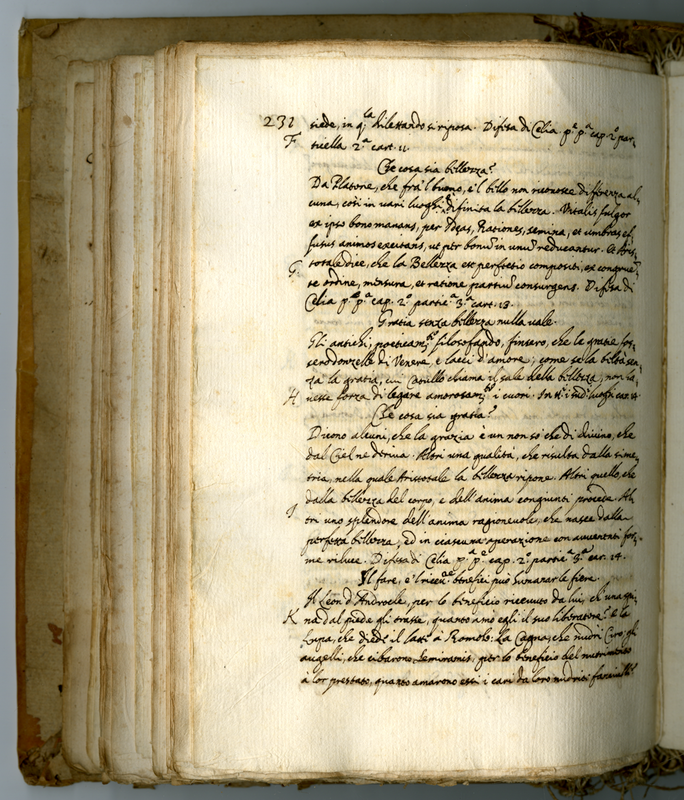 232 siede, in q.la dilettando si riposa. Difesa di Celia p.e p.a cap. 2.o par-
F ticella 2.a cart. 11.
Che cosa sia bellezza?
Da Platone, che frà'l buono, e'l bello non ricnosce differenza al-
cuna, così in vari luoghi è difinita la bellezza. Vitalis fulgor
ex ipso bono manans, per Ideas, Rationes, semina, et umbras ef-
fusus animos excitans, ut per bonũ in unũ reducantur. Et Aris-
G totele dice, che la Bellezza est perfectio compositi, ex congruẽ-
te ordine, mensura, et ratione partiũ consurgens. Difesa di
Celia p.e p.a cap. 2.o partic.a 3.a cart. 13.
Gratia senza bellezza nulla vale.
Gli antichi, poeticam.te filosofando, finsero, che le gratie fos-
sero donzelle di Venere, e lacci d'amore; come se la beltà sen-
za la gratia, cui Catullo chiama il sale della bellezza, non ha-
H vesse forza di legare amorosam.te i cuori. In st.i med.i luoghi car. 14
Che cosa sia gratia?
Dicono alcuni, che la grazia è un non sò che di divino, che
dal Ciel ne deriva. Altri una qualità, che risulta dalla sime-
tria, nella quale Aristotale la bellezza ripone. Altri quello, che
dalla bellezza del corpo, e dell'anima congiunti procede. Al-
I tri uno splendore dell'anima ragionevole, che nasce dalla
perfetta bellezza, ed in ciascuna operazione con avvenenti for-
me riluce. Difesa di Celia p.a p.e cap. 2.o partic.a 3.a car. 14.
Il fare, e'l ricev.e benefici può humanar le fiere.
Il Leon d'Androcle, per lo beneficio ricevuto da lui, ch'una spi-
K na dal piede gli trasse, quanto amò egli il suo liberatore? E la
Lupa, che diede il latt.e à Romolo: La Cagna, che nudrì Ciro, gli
augelli, che cibarono Semiramis, per lo beneficio del nutrimento
à lor prestato, quanto amarono essi i cari da loro nudriti